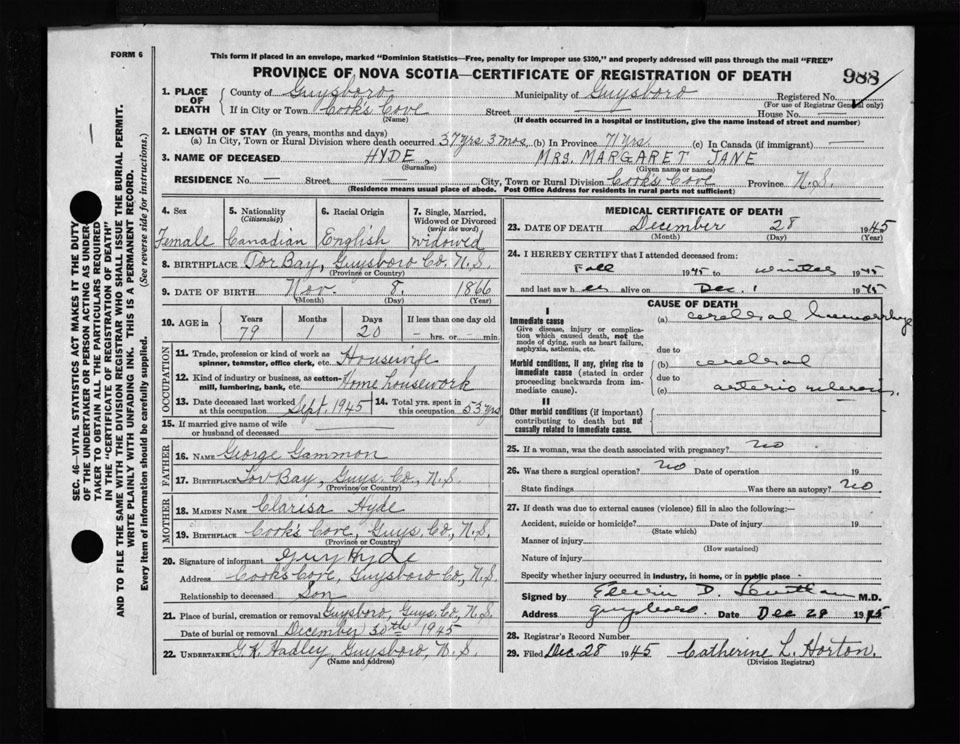 FORM 6
This form if placed in an envelope, marked "Dominion Statistics—Free, penalty for improper use $300," and properly addressed will pass through the mail "FREE"
PROVINCE OF NOVA SCOTIA—CERTIFICATE OF REGISTRATION OF DEATH
988
1. PLACE OF DEATH
County of Guysboro Municipality of Guysboro Registered No.
(For use of Registrar General only)
If in City or Town Cook's Cove Street — House No. —
(Name) (If death occurred in a hospital or institution, give the name instead of street and number)
2. LENGTH OF STAY (in years, months and days)
(a) In City, Town or Rural Division where death occurred 37 yrs. 3 mos. (b) In Province 79 yrs. (c) In Canada (if immigrant) —
3. NAME OF DECEASED HYDE, MRS. MARGARET JANE
(Surname) (Given name or names)
RESIDENCE No. — Street City, Town or Rural Division Cook's Cove Province N.S.
(Residence means usual place of abode. Post Office Address for residents in rural parts not sufficient)
4. Sex Female
5. Nationality (Citizenship) Canadian
6. Racial Origin English
7. Single, Married, Widowed or Divorced (write the word) widowed
8. BIRTHPLACE Tor Bay, Guysboro Co. N.S.
(Province or Country)
9. DATE OF BIRTH Nov. 8. 1866
(Month) (Day) (Year)
10. AGE in Years Months Days If less than one day old
79 1 20 - hrs. or min.
OCCUPATION
11. Trade, profession or kind of work as spinner, teamster, office clerk, etc. Housewife
12. Kind of industry or business, as cotton-mill, lumbering, bank, etc. Home housework
13. Date deceased last worked at this occupation Sept. 1945 14. Total yrs. spent in this occupation 53 yrs
15. If married give name of wife or husband of deceased
FATHER
16. NAME George Gammon
17. BIRTHPLACE Tor Bay, Guys. Co., N.S.
(Province or Country)
MOTHER
18. MAIDEN NAME Clarisa Hyde
19. BIRTHPLACE Cook's Cove, Guys. Co, N.S.
(Province or Country)
20. Signature of informant Guy Hyde
Address Cook's Cove, Guysboro Co, N.S.
Relationship to deceased Son
21. Place of burial, cremation or removal Guysboro, Guys. Co, N.S.
Date of burial or removal December 30th 1945
22. UNDERTAKER G. K. Hadley, Guysboro, N.S.
(Name and address)
MEDICAL CERTIFICATE OF DEATH
23. DATE OF DEATH December 28 1945
(Month) (Day) (Year)
24. I HEREBY CERTIFY that I attended deceased from:
Fall 1945 to winter 1945
and last saw her alive on Dec. 1 1945
CAUSE OF DEATH
I
Immediate cause
Give disease, injury or complication which caused death, not the mode of dying, such as heart failure, asphyxia, asthenia, etc.
(a) cerebral hemorrhage
due to
Morbid conditions, if any, giving rise to immediate cause (stated in order proceeding backwards from immediate cause).
(b) cerebral
due to
(c) arterio sclerosis
II
Other morbid conditions (if important) contributing to death but not causally related to immediate cause.
25. If a woman, was the death associated with pregnancy? no
26. Was there a surgical operation? no Date of operation 19
State findings Was there an autopsy? no
27. If death was due to external causes (violence) fill in also the following:—
Accident, suicide or homicide? Date of injury 19
(State which)
Manner of injury
(How sustained)
Nature of injury
Specify whether injury occurred in industry, in home, or in public place
Signed by D. M.D.
Address Guysboro Date Dec 28 1945
28. Registrar's Record Number
29. Filed Dec. 28 1945 Catherine L. Horton.
(Division Registrar)
SEC. 46—VITAL STATISTICS ACT MAKES IT THE DUTY
OF THE UNDERTAKER OR PERSON ACTING AS UNDERTAKER TO OBTAIN ALL THE PARTICULARS REQUIRED
IN THE "CERTIFICATE OF REGISTRATION OF DEATH"
AND TO FILE THE SAME WITH THE DIVISION REGISTRAR WHO SHALL ISSUE THE BURIAL PERMIT.
WRITE PLAINLY WITH UNFADING INK. THIS IS A PERMANENT RECORD.
Every item of information should be carefully supplied. (See reverse side for instructions.)